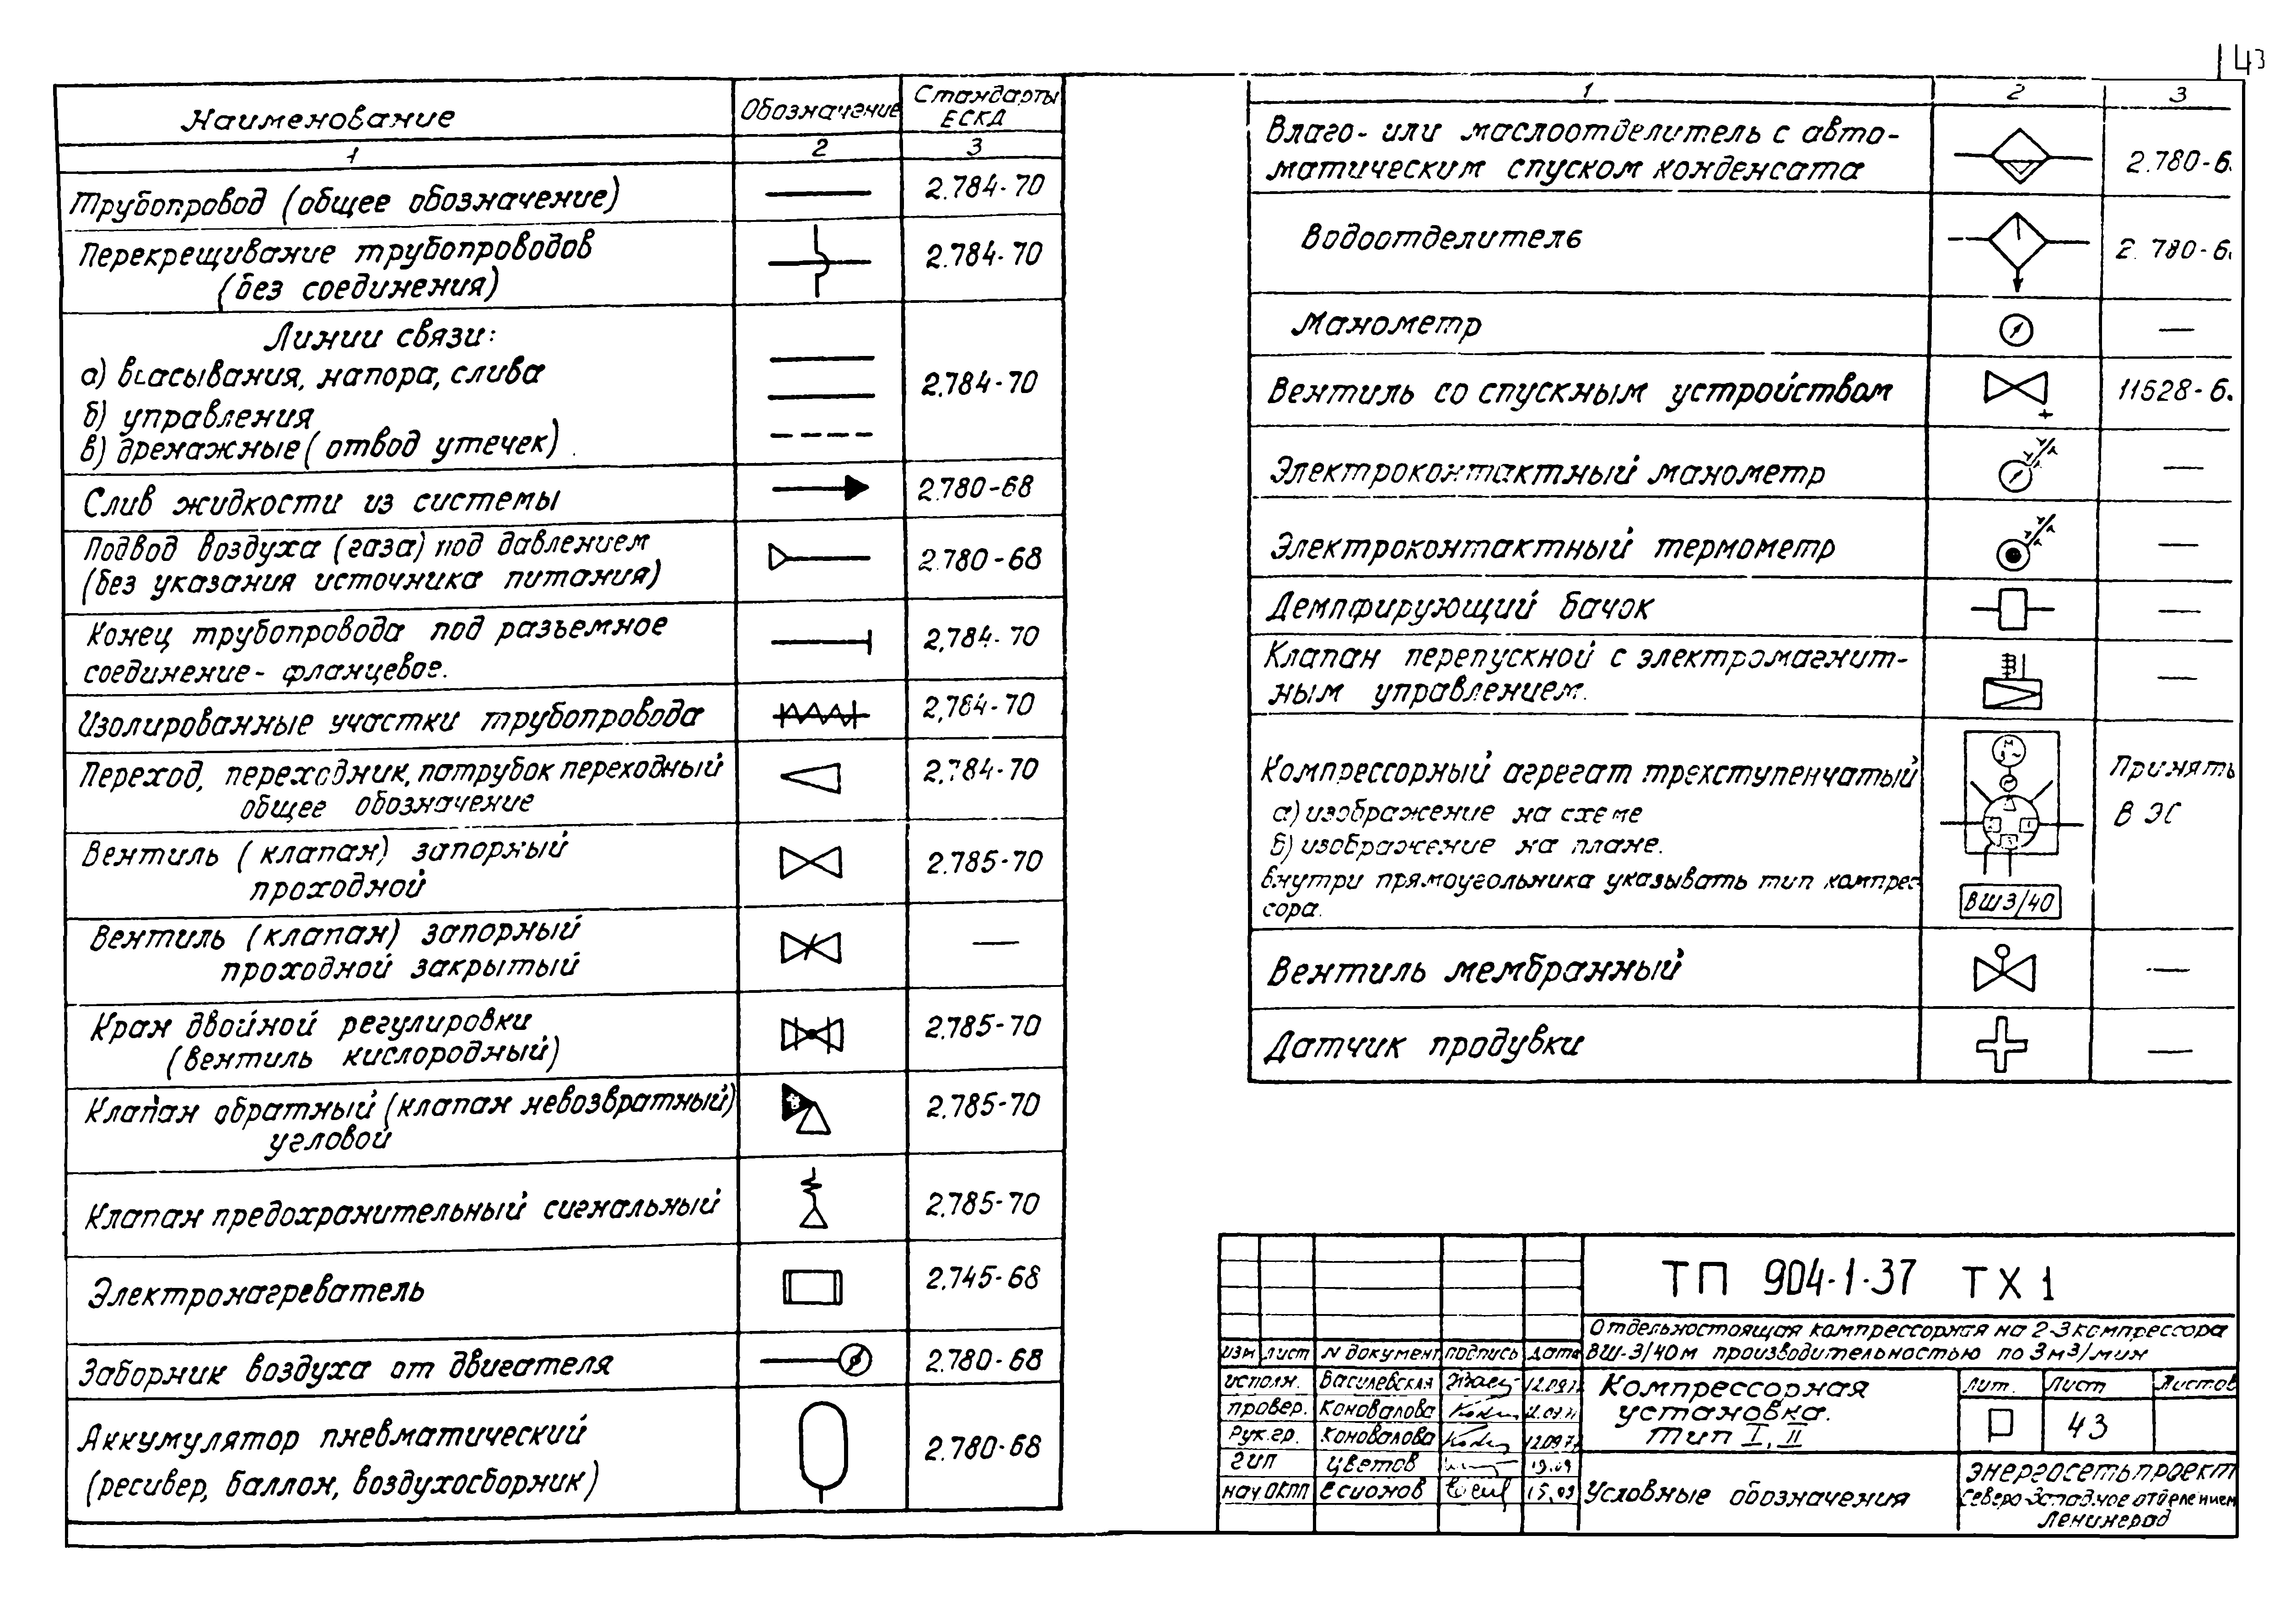 43
Наименование
Обозначение
Стандарты
ЕСКД
1
2
3
Трубопровод (общее обозначение)
2.784-70
Перекрещивание трубопроводов
(без соединения)
2.784-70
Линии связи:
а) всасывания, напора, слива
б) управления
в) дренажные (отвод утечек)
2.784-70
Слив жидкости из системы
2.780-68
Подвод воздуха (газа) под давлением
(без указания источника питания)
2.780-68
Конец трубопровода под разъемное
соединение - фланцевое.
2.784-70
Изолированные участки трубопровода
2.784-70
Переход, переходник, патрубок переходный
общее обозначение
2.784-70
Вентиль (клапан) запорный
проходной
2.785-70
Вентиль (клапан) запорный
проходной закрытый
—
Кран двойной регулировки
(вентиль кислородный)
2.785-70
Клапан обратный (клапан невозвратный)
угловой
2.785-70
Клапан предохранительный сигнальный
2.785-70
Электронагреватель
2.745-68
Заборник воздуха от двигателя
2.780-68
Аккумулятор пневматический
(ресивер, баллон, воздухосборник)
2.780-68
1
2
3
Влаго- или маслоотделитель с авто-
матическим спуском конденсата
2.780-6
Водоотделитель
2.780-6
Манометр
—
Вентиль со спускным устройством
11628-6
Электроконтактный манометр
—
Электроконтактный термометр
—
Демпфирующий бачок
—
Клапан перепускной с электромагнит-
ным управлением.
—
Компрессорный агрегат трехступенчатый
а) изображение на схеме
б) изображение на плане.
внутри прямоугольника указывать тип компрес
сора.
М
ВШ3/40
Принять
В ЭС
Вентиль мембранный
—
Датчик продувки
—
ТП 904-1-37 ТХ1
Отдельностоящая компрессорная на 2-3 компрессора
ВШ-3/40м производительностью по 3м³/мин
изм лист N документ подпись дата
исполн. Василевская
провер. Коновалова
Рук.гр. Коновалова
гип Цветов 19.09
нач ОКПП Есионов 15.09
Компрессорная
установка.
Тип I, II
Лит. Лист Листов
Р 43
Условные обозначения
Энергосетьпроект
Северо-Западное отделением
Ленинград